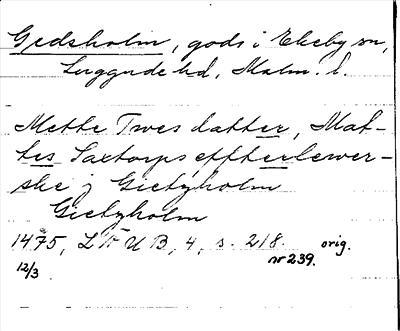 Gedsholm, gods i Ekeby sn,
Luggude hd, Malm. l.
Mette Twes datter, Mat-
tes Saxtorps effterlewer-
ske j Gietzholm
Gietzholm
1475, LÅUB, 4, s. 218. orig.
nr 239.
12/3